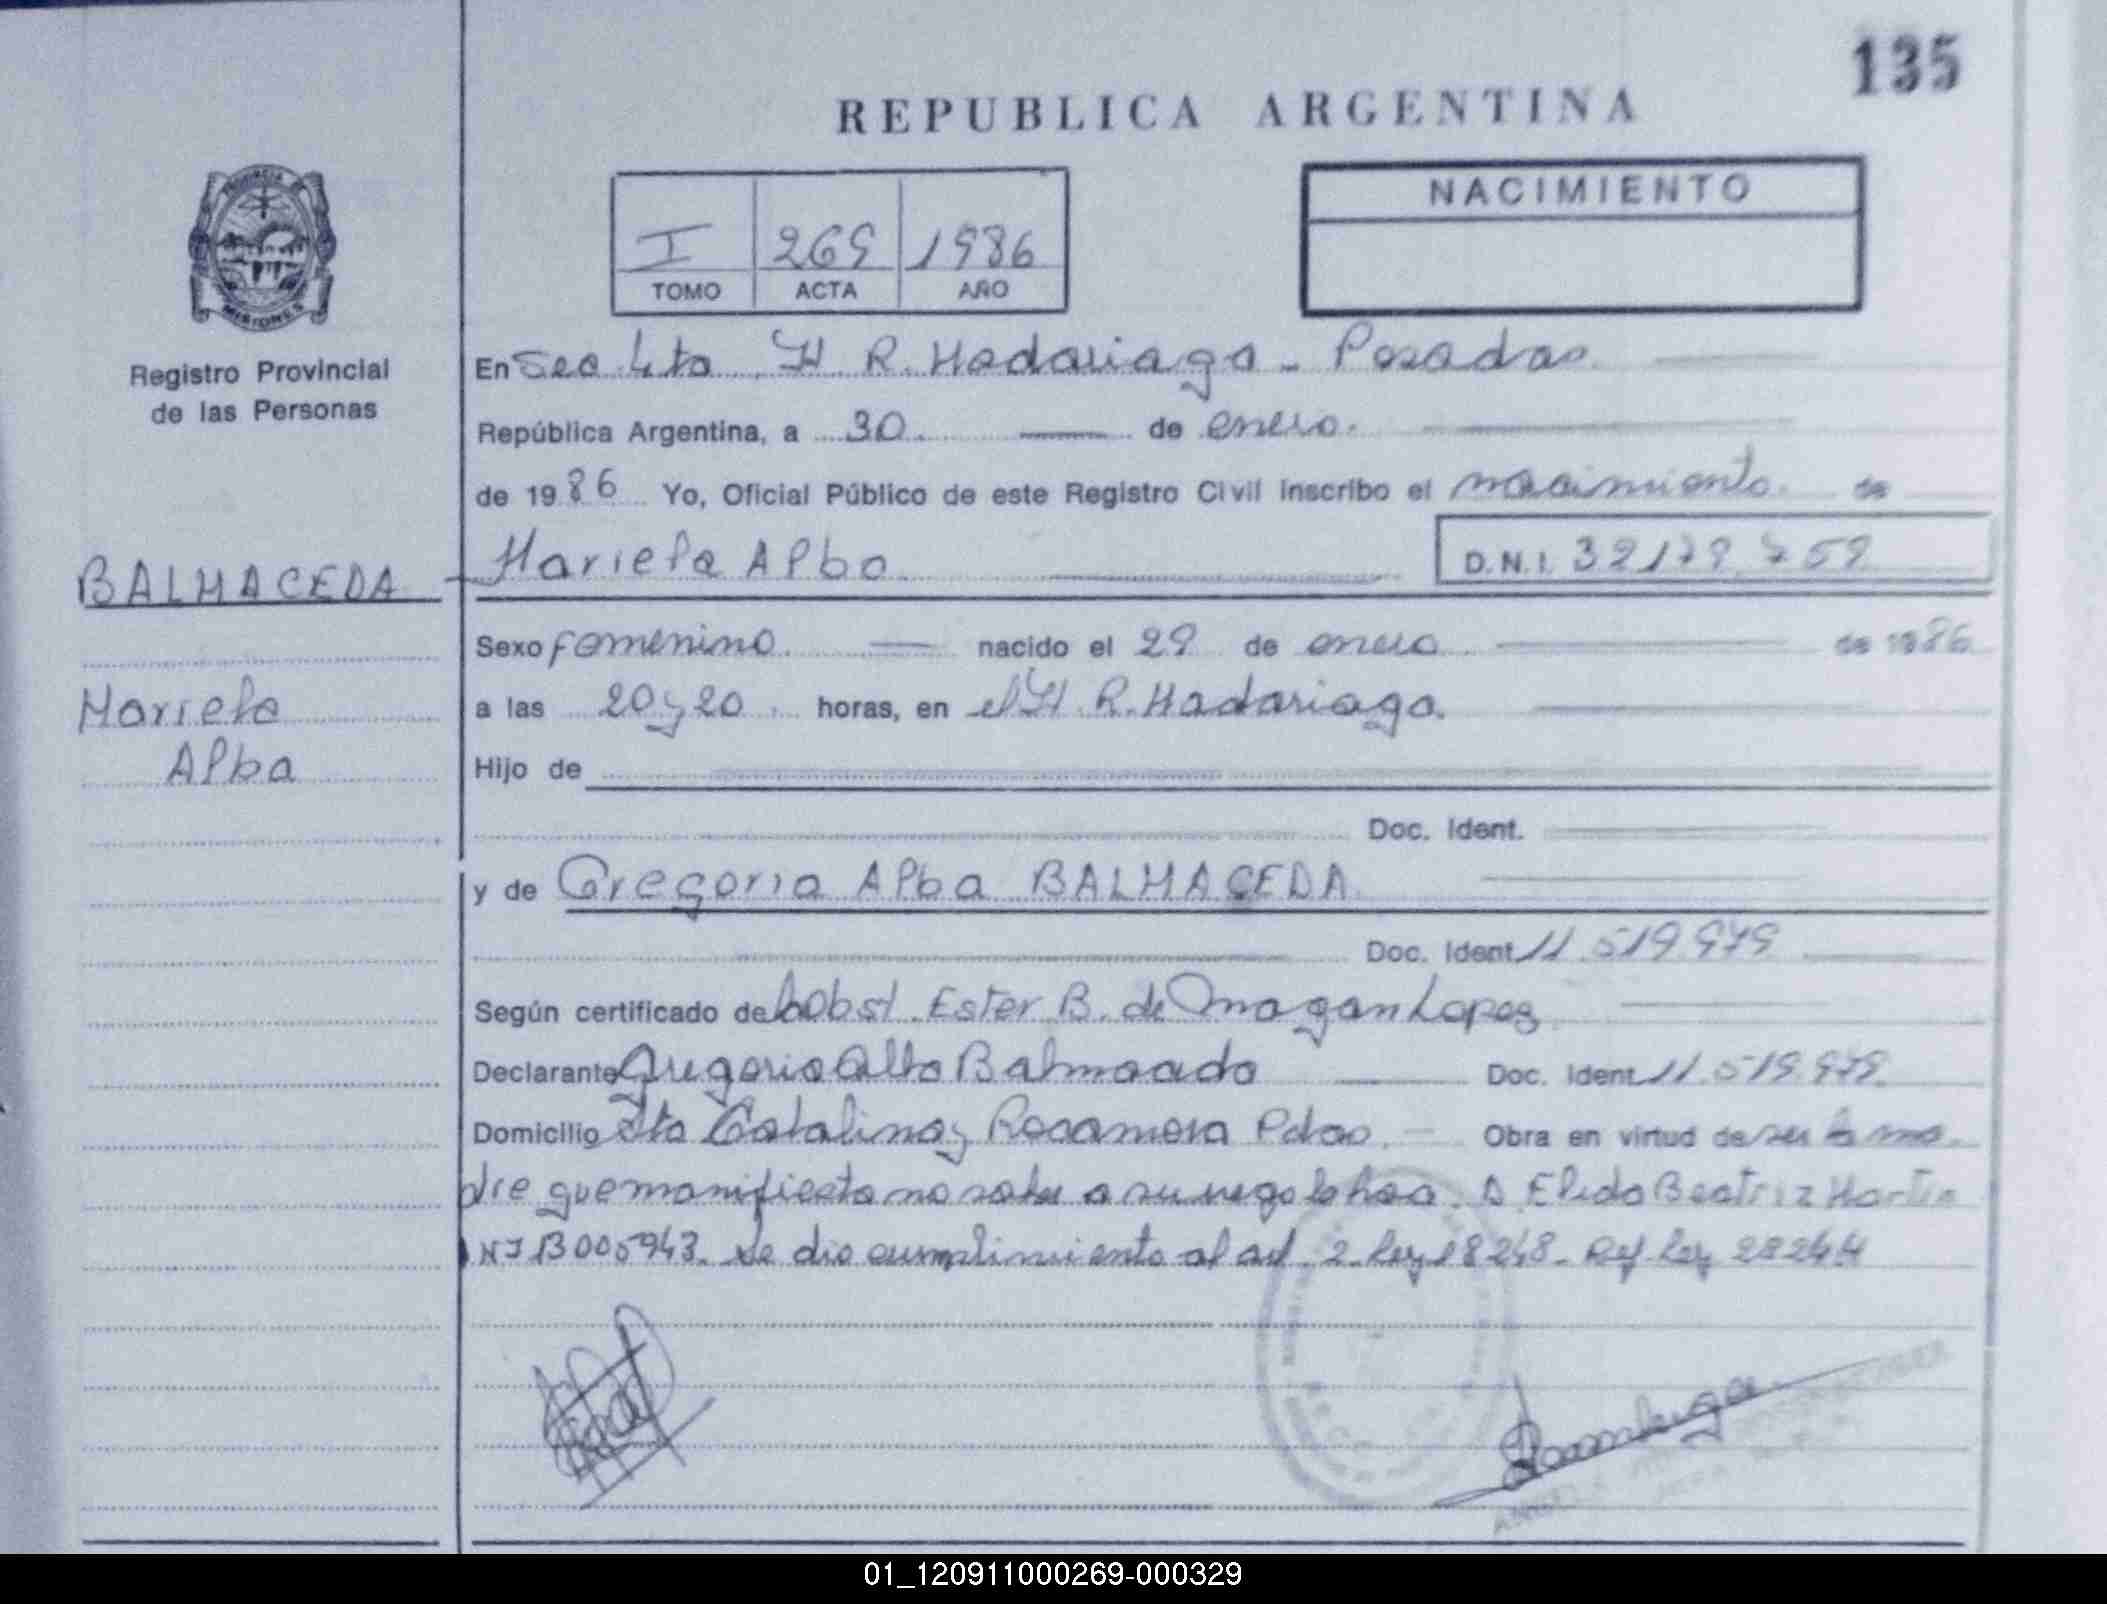 135
REPUBLICA ARGENTINA
PROVINCIA DE
MISIONES
Registro Provincial
de las Personas
I 269 1986
TOMO ACTA AÑO
NACIMIENTO
En Sec 4ta H R. Madariaga - Posadas
República Argentina, a 30 de enero.
de 1986 Yo, Oficial Público de este Registro Civil inscribo el nacimiento de
BALMACEDA Mariela Alba D.N.I. 32179759
Sexo femenino nacido el 29 de enero de 1986
Mariela
Alba
a las 20 y 20 horas, en el H. R. Madariaga.
Hijo de
Doc. Ident.
y de Gregoria Alba BALMACEDA
Doc. Ident 11.519.979
Según certificado de la Obst. Ester B. de Magan Lopez
Declarante Gregoria Alba Balmaceda Doc. Ident 11.519.979
Domicilio Sta Catalina y Rocamora Pdas. Obra en virtud de ser la ma
dre que manifiesta no saber a su ruego lo hace Elida Beatriz Martin
005943. Se dio cumplimiento al art. 2 Ley 18248 - Ref. Ley
01_120911000269-000329